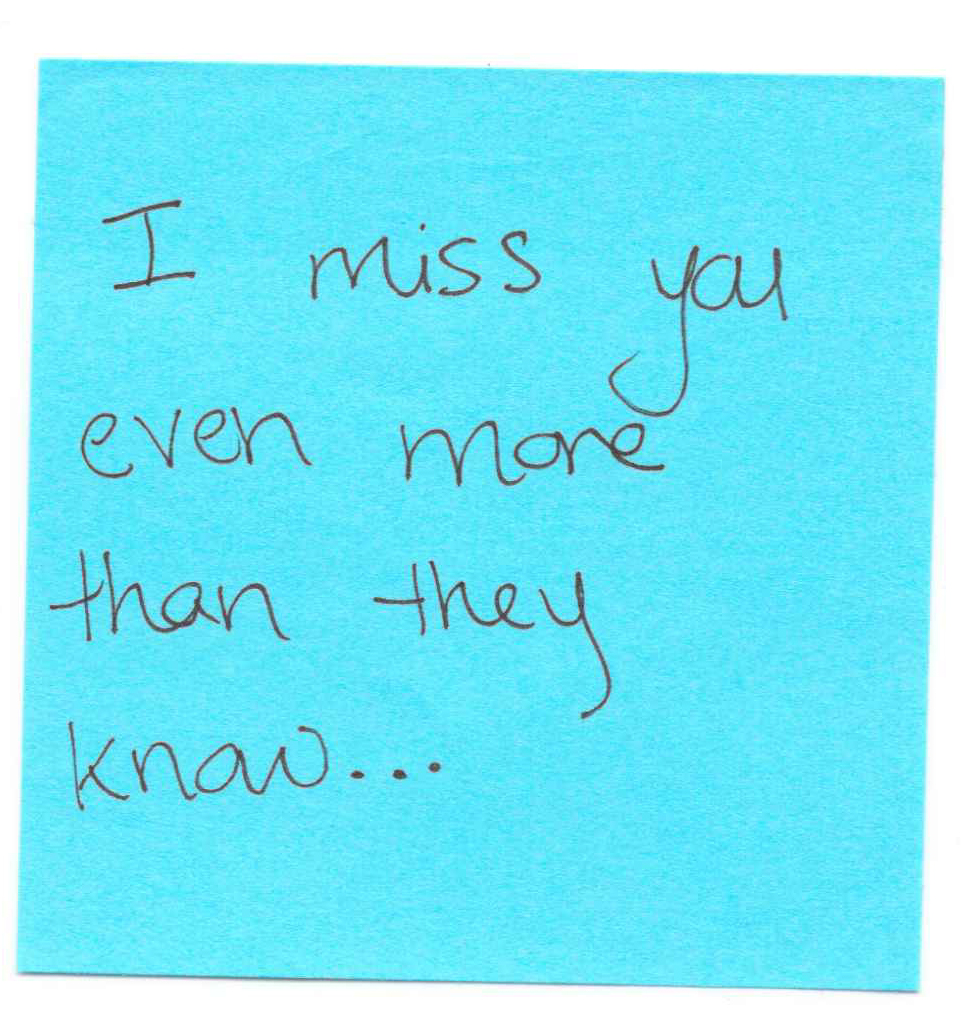 I miss you
even more
than they
know...